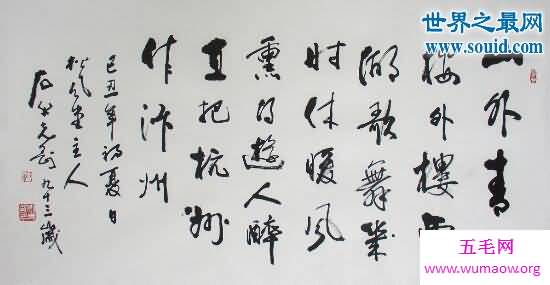 世界之最网
www.souid.com
山外青
楼外樓西
湖歌舞幾
时休暖风
熏得遊人醉
直把杭州
作汴州
己丑年初夏日
松风堂主人
九十三歲
五毛网
www.wumaow.org